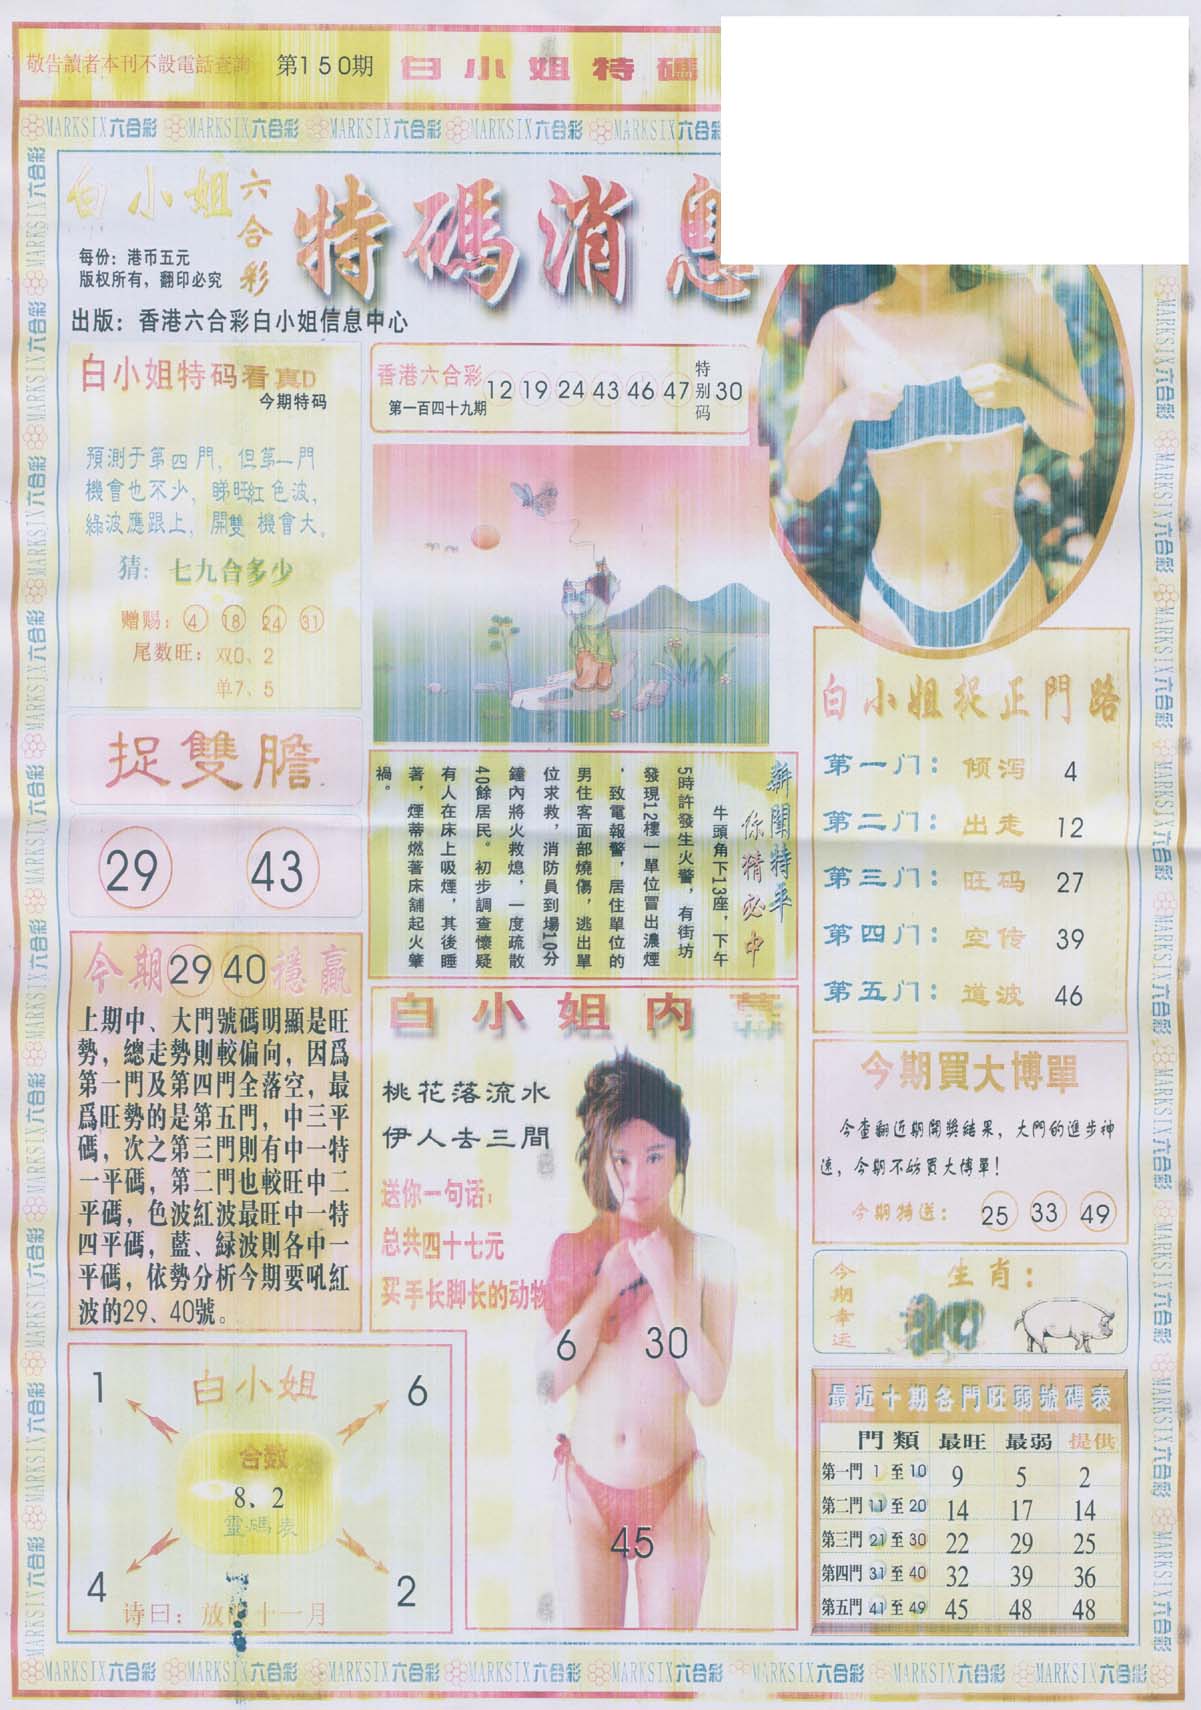 敬告讀者本刊不設電話查詢
第150期
白小姐特碼
MARKSIX六合彩 MARKSIX六合彩 MARKSIX六合彩 MARKSIX六合彩 MARKSIX六合彩
白小姐六合彩
特碼消息
每份：港币五元
版权所有，翻印必究
出版：香港六合彩白小姐信息中心
白小姐特码看真D
今期特码
預測于第四門，但第一門
機會也不少，睇旺紅色波，
綠波應跟上，開雙機會大。
猜：七九合多少
赠赐：4 18 24 31
尾数旺：双0、2
单7、5
香港六合彩
第一百四十九期
12 19 24 43 46 47 特别码 30
捉雙膽
29 43
新聞特平
你猜必中
牛頭角下13座，下午
5時許發生火警，有街坊
發現12樓一單位冒出濃煙
，致電報警，居住單位的
男住客面部燒傷，逃出單
位求救，消防員到場10分
鐘內將火救熄，一度疏散
40餘居民。初步調查懷疑
有人在床上吸煙，其後睡
著，煙蒂燃著床舖起火肇
禍。
白小姐捉正門路
第一门：倾泻 4
第二门：出走 12
第三门：旺码 27
第四门：空传 39
第五门：道波 46
今期 29 40 穩贏
上期中、大門號碼明顯是旺
勢，總走勢則較偏向，因爲
第一門及第四門全落空，最
爲旺勢的是第五門，中三平
碼，次之第三門則有中一特
一平碼，第二門也較旺中二
平碼，色波紅波最旺中一特
四平碼，藍、緑波則各中一
平碼，依勢分析今期要吼紅
波的29、40號。
白小姐内幕
桃花落流水
伊人去三間
送你一句话：
总共四十七元
买手长脚长的动物
6 30
45
今期買大博單
今查翻近期開獎結果，大門的進步神
速，今期不妨買大博單！
今期特送：25 33 49
今期幸运
生肖：
白小姐
1 6
合数
8、2
靈碼表
4 2
诗曰：放 十一月
最近十期各門旺弱號碼表
門類 最旺 最弱 提供
第一門 1 至 10 9 5 2
第二門 11 至 20 14 17 14
第三門 21 至 30 22 29 25
第四門 31 至 40 32 39 36
第五門 41 至 49 45 48 48
MARKSIX六合彩 MARKSIX六合彩 MARKSIX六合彩 MARKSIX六合彩 MARKSIX六合彩 MARKSIX六合彩 MARKSIX六合彩 MARKSIX六合彩